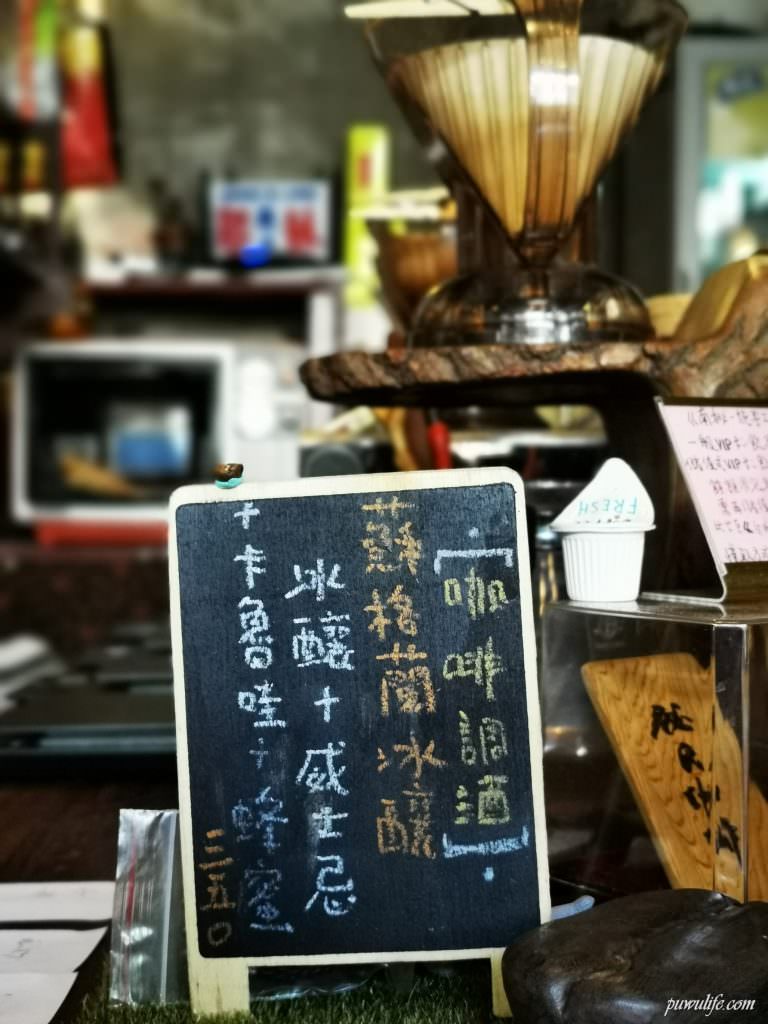 ·[咖啡調酒]·
蘇格蘭冰釀
冰釀+威士忌
+卡魯哇+蜂蜜
三五0
FRESH
puwulife.com